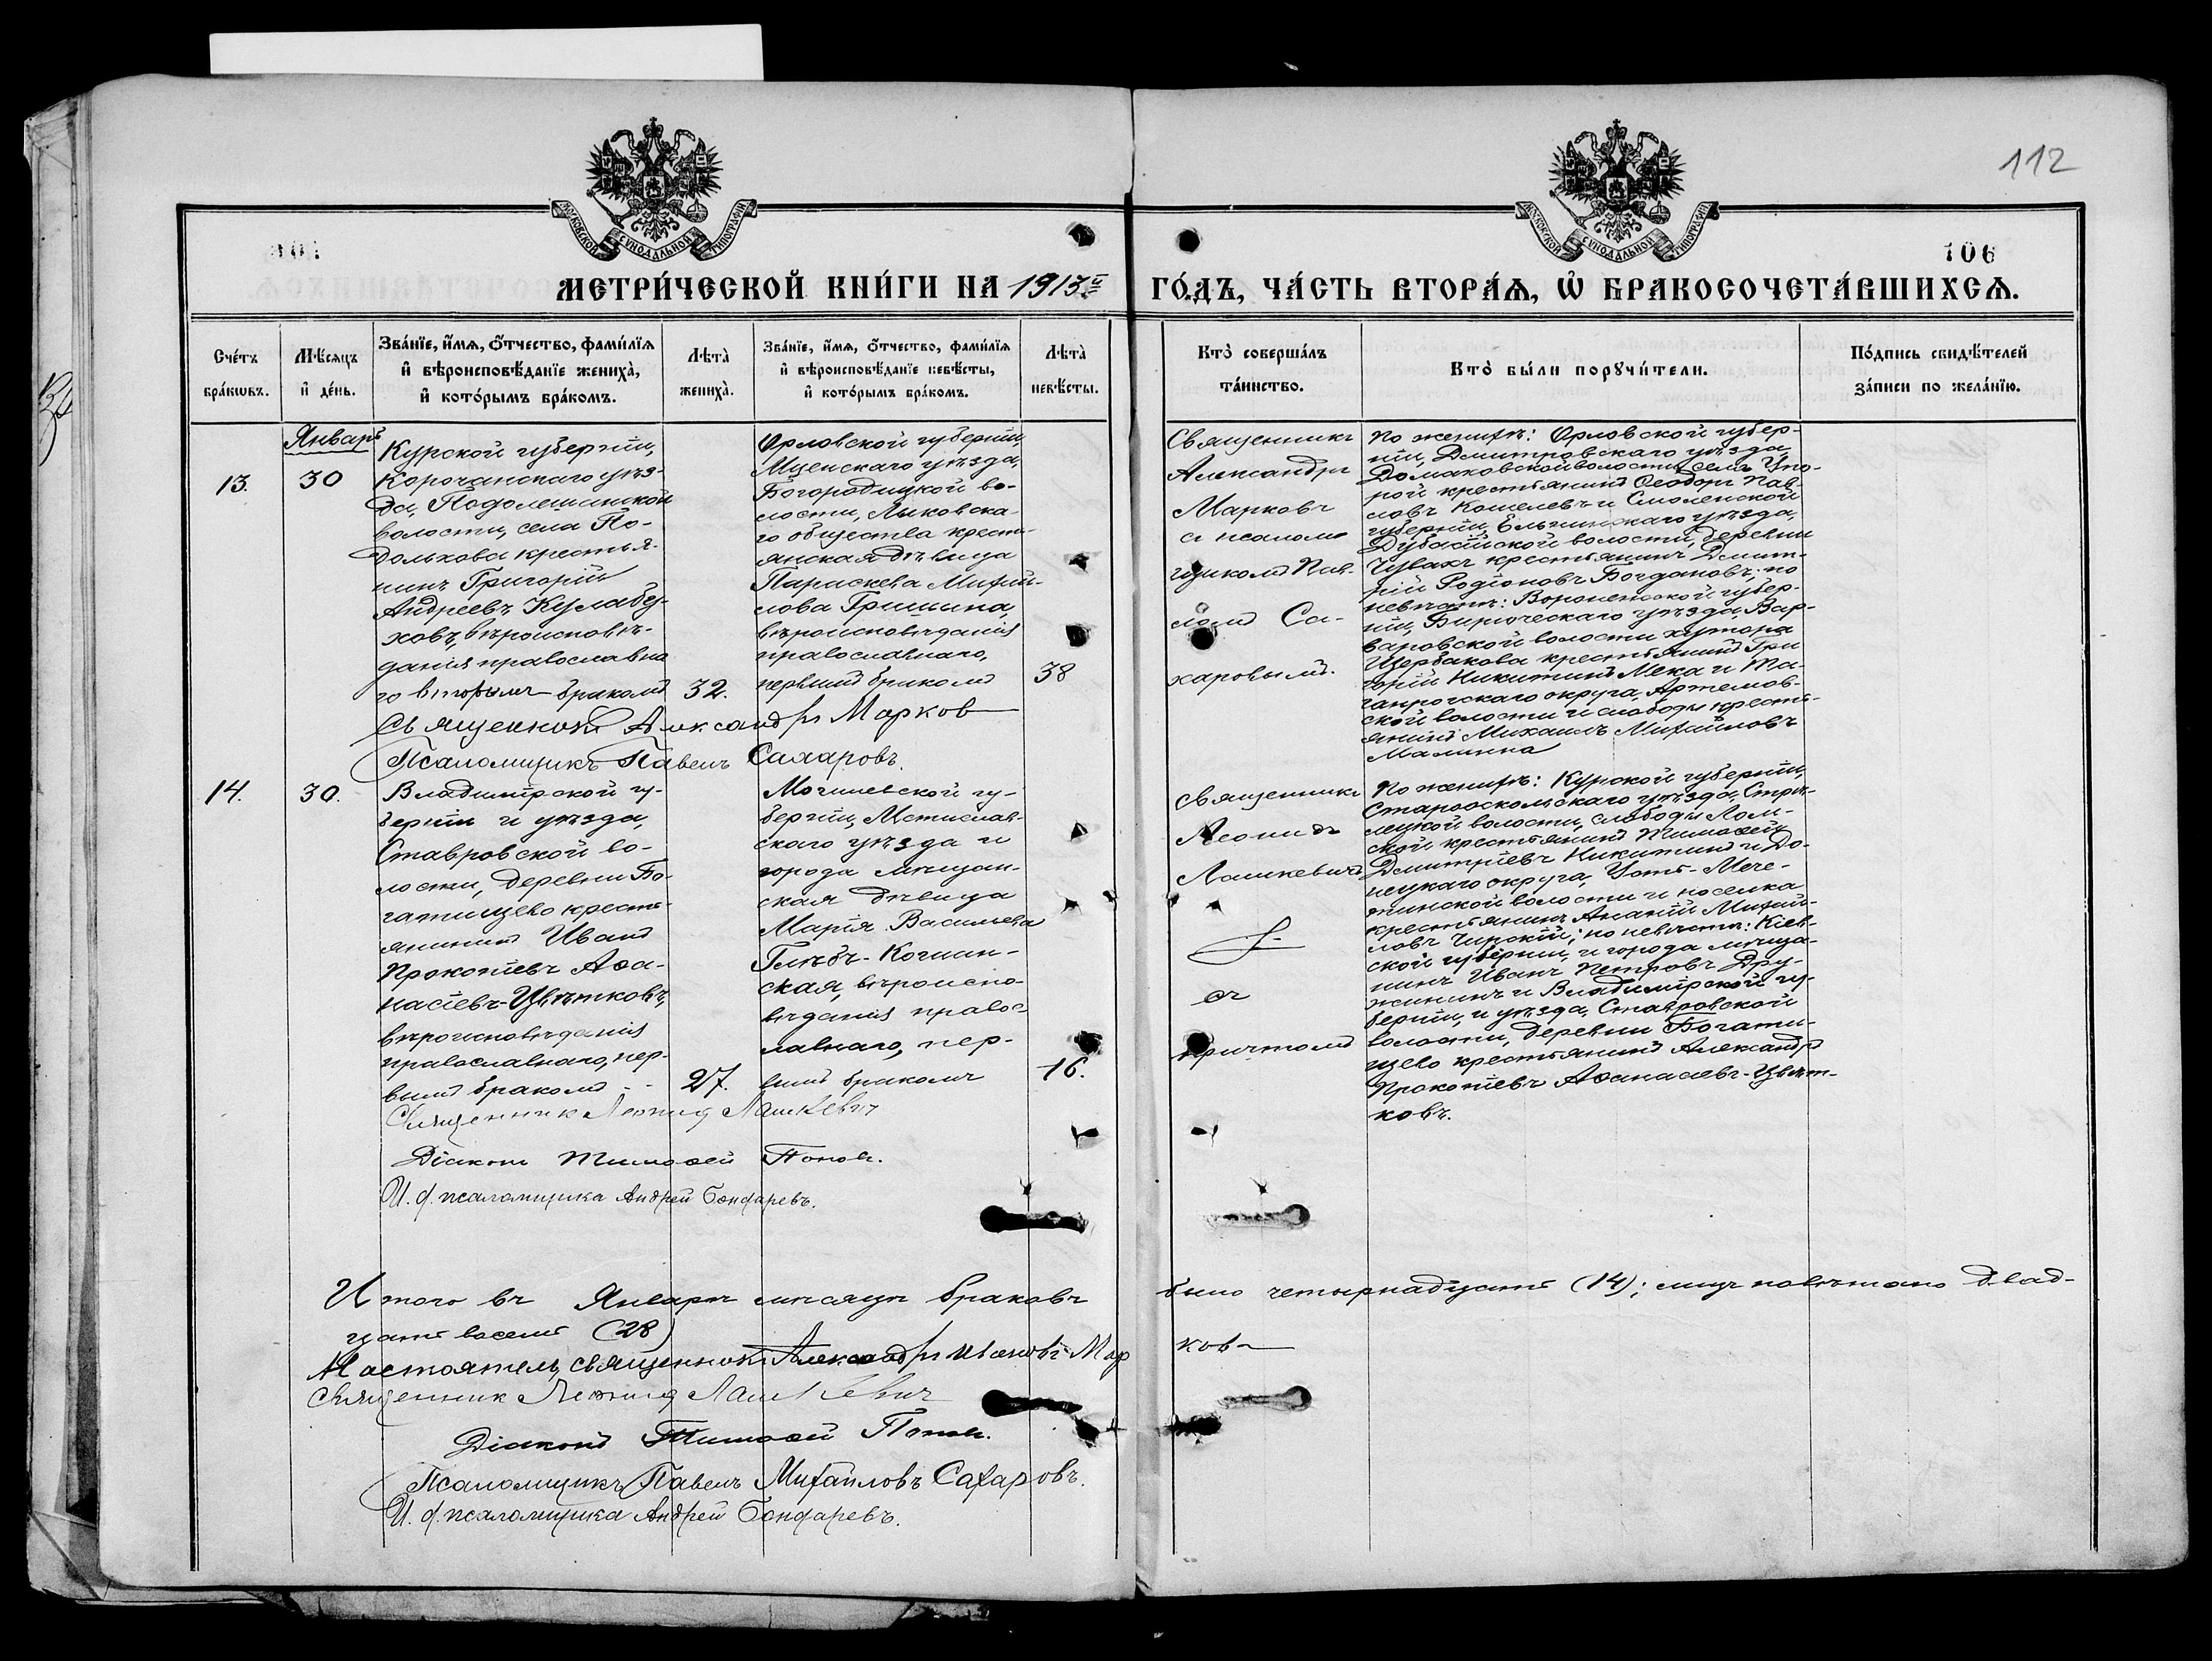 112
МОСКОВСКОЙ СѴНОДАЛЬНОЙ ТИПОГРАФІИ
МОСКОВСКОЙ СѴНОДАЛЬНОЙ ТИПОГРАФІИ
106
МЕТРИ́ЧЕСКОЙ КНИ́ГИ НА 1913й ГО́ДЪ, ЧА́СТЬ ВТОРА́Ѧ, Ѡ҆ БРАКОСОЧЕТА́ВШИХСѦ.
Сче́тъ
бра́кѡвъ.
Мѣ́сѧцъ
и҆ де́нь.
Зва́нїе, и҆́мѧ, ѻ҆́тчество, фами́лїѧ
и҆ вѣроисповѣ́данїе жениха̀,
и҆ кото́рымъ бра́комъ.
Лѣта̀
жениха̀.
Зва́нїе, и҆́мѧ, ѻ҆́тчество, фами́лїѧ
и҆ вѣроисповѣ́данїе невѣ́сты,
и҆ кото́рымъ бра́комъ.
Лѣта̀
невѣ́сты.
Кто̀ соверша́лъ
та́инство.
Кто̀ бы́ли порꙋчи́тели.
По́дпись свидѣ́телей
за́писи по жела́нїю.
13.
Январь
30
Курской губерніи,
Корочанскаго уѣз-
да, Подолешинской
волости, села По-
дольхова крестья-
нинъ Григорій
Андреевъ Кулабу-
ховъ, вѣроисповѣ-
данія православна
го вторымъ бракомъ
32.
Орловской губерніи,
Мценскаго уѣзда,
Богородицкой во-
лости, Лыковска-
го общества кресть
янская дѣвица
Параскева Михай-
лова Гришина,
вѣроисповѣданія
православнаго,
первымъ бракомъ
38
Священникъ
Александръ
Марковъ
съ псалом
щикомъ Пав-
ломъ Са-
харовымъ.
По женихѣ: Орловской губер-
ніи, Дмитровскаго уѣзда,
Домаховской волости, села Упо-
рой крестьянинъ Ѳеодоръ Пав-
ловъ Кошелевъ и Смоленской
губерніи, Ельнинскаго уѣзда,
волости, деревни
Чувахъ крестьянинъ Дмит-
рій Родіоновъ Богдановъ; по
невѣстѣ: Воронежской губер-
ніи, Бирюческаго уѣзда, Вар-
варовской волости хутора
Щербакова крестьянинъ Гри
горій Никитинъ Мека и Та-
ганрогскаго округа Артемов-
ской волости и слободы кресть-
янинъ Михаилъ Михайловъ
Малинка
Священникъ Александръ Марковъ
Псаломщикъ Павелъ Сахаровъ.
14.
30.
Владимірской гу-
берніи и уѣзда,
Ставровской во-
лости, деревни Бо-
гатищево кресть-
янинъ Иванъ
Прокопіевъ Аѳа-
насіевъ-Цвѣтковъ,
вѣроисповѣданія
православнаго, пер-
вымъ бракомъ
27.
Могилевской гу-
берніи, Мстислав-
скаго уѣзда и
города мѣщан-
ская дѣвица
Марія Васильева
Глѣбъ-Кошан-
ская, вѣроиспо-
вѣданія правос-
лавнаго, пер-
вымъ бракомъ
16.
Священникъ
Леонидъ
Лашкевичъ
съ
причтомъ
По женихѣ: Курской губерніи,
Старооскольскаго уѣзда, Стрѣ-
лецкой волости, слободы Лом-
ской крестьянинъ Тимоѳей
Дмитріевъ Никитинъ и До-
нецкаго округа, Усть-Мече-
тинской волости и поселка
крестьянинъ Ананій Михай-
ловъ Чирскій; по невѣстѣ: Кіев-
ской губерніи, и города мѣща-
нинъ Иванъ Петровъ Дру-
жининъ и Владимірской гу-
берніи, и уѣзда, Ставровской
волости, деревни Богати-
щево крестьянинъ Александръ
Прокопіевъ Аѳанасіевъ-Цвѣт-
ковъ.
Священник Леонид Лашкевич
Діаконъ Тимоѳей Поповъ.
И. д. псаломщика Андрей Бондаревъ.
Итого въ Январѣ мѣсяцѣ браковъ было четырнадцать (14); лицъ повѣнчано двад-
цать восемь (28)
Настоятель, священникъ Александръ Ивановъ Марковъ
Священник Леонид Лашкевич
Діаконъ Тимоѳей Поповъ.
Псаломщикъ Павелъ Михайловъ Сахаровъ.
И. д. псаломщика Андрей Бондаревъ.